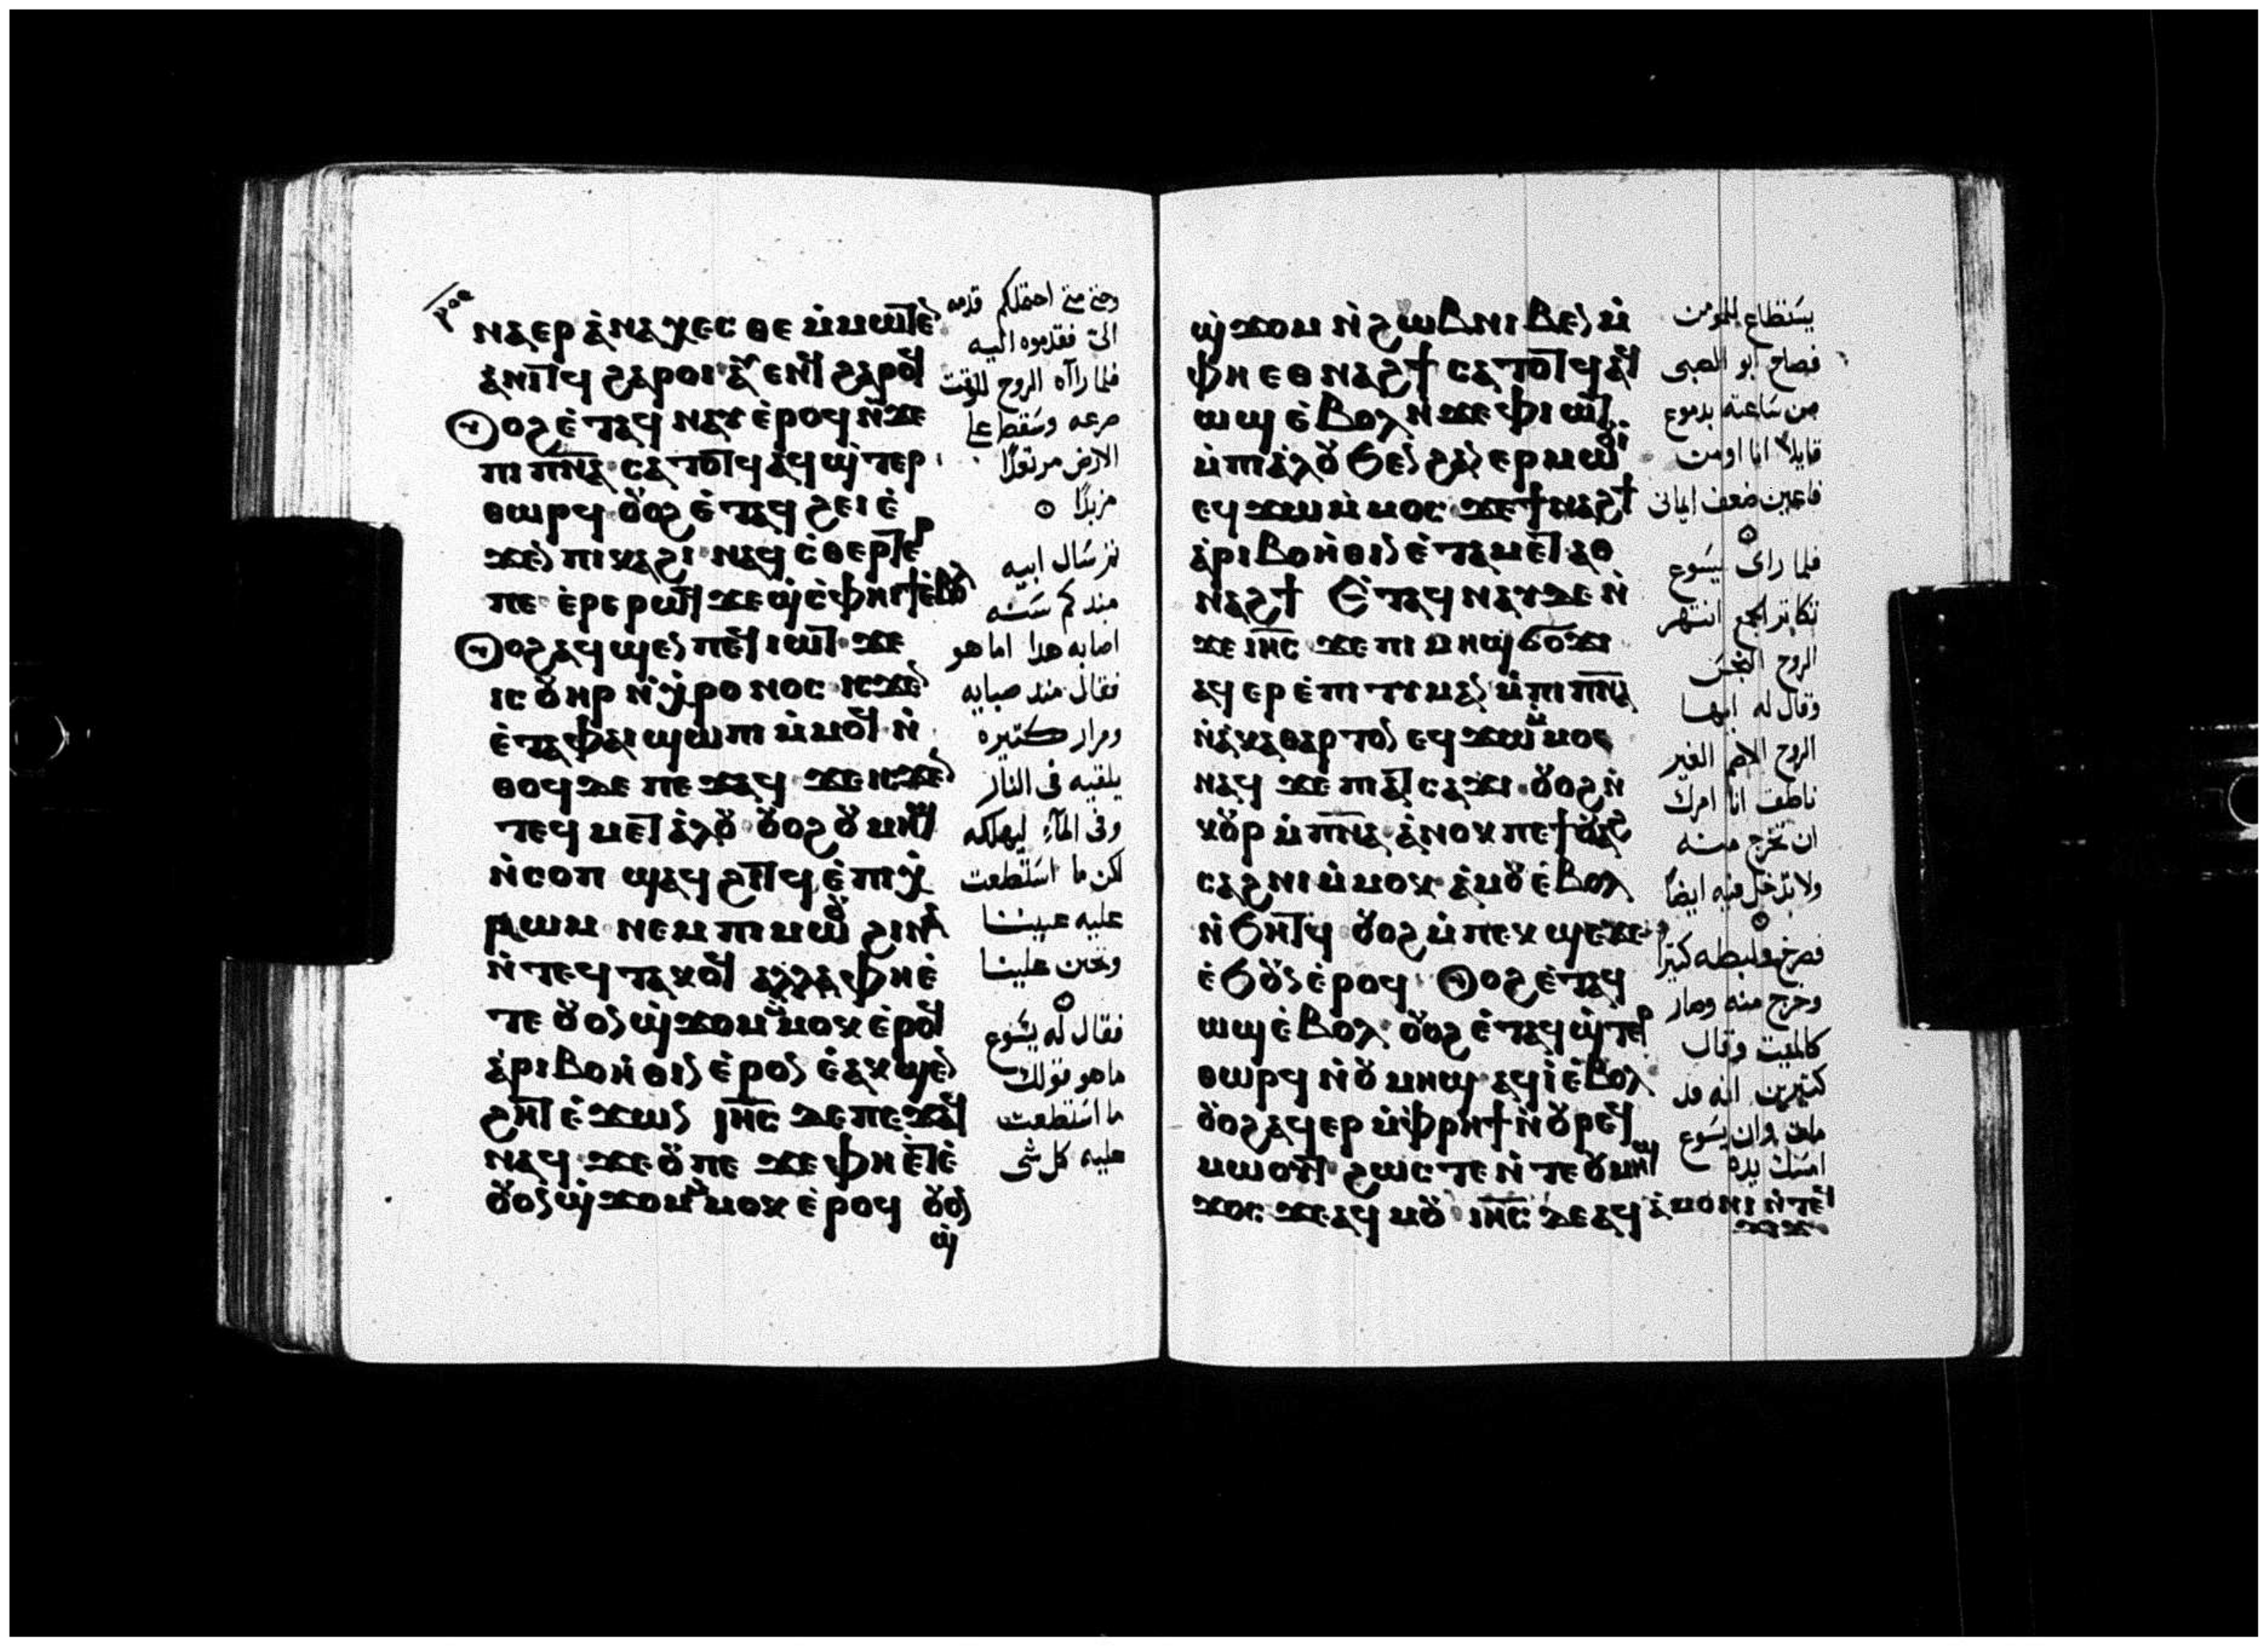 ⲣⲟⲉ
ⲛⲁⲉⲣ ⲁ̇ⲛⲁⲭⲉⲥⲑⲉ ⲙ̇ⲙⲱⲧⲉⲛ
ⲁ̇ⲛⲓⲧϥ ϩⲁⲣⲟⲓ ⲁⲩⲉⲛϥ ϩⲁⲣⲟϥ
ⲟⲩⲟϩ ⲉ̇ⲧⲁϥ ⲛⲁⲩ ⲉ̇ⲣⲟϥ ⲛ̇ϫⲉ
ⲡⲓ ⲡ̅ⲛ̅ⲁ̅ ⲥⲁⲧⲟⲧϥ ⲁϥϣ̇ⲧⲉⲣ
ⲑⲱⲣϥ ⲟⲩⲟϩ ⲉ̇ⲧⲁϥ ϩⲉⲓ ⲉ̇
ϫⲉⲛ ⲡⲓⲕⲁϩⲓ ⲛⲁϥ ⲥ̇ⲑⲉⲣⲧⲉⲣ
ⲡⲉ ⲉ̇ⲣⲉ ⲣⲱϥ ϫⲉϣ ⲥ̇ⲫⲏⲓϯ ⲉ̇ⲃⲟⲗ
ⲟⲩⲟϩ ⲁϥϣⲉⲛ ⲡⲉϥⲓⲱⲧ ϫⲉ
ⲓⲥ ⲟⲩⲏⲣ ⲛ̇ⲭ̇ⲣⲟⲛⲟⲥ ⲓⲥϫⲉⲛ
ⲉ̇ⲧⲁ ⲫⲁⲓ ϣⲱⲡⲓ ⲙ̇ⲙⲟϥ ⲛ̇
ⲑⲟϥ ⲇⲉ ⲡⲉϫⲁϥ ϫⲉ ⲓⲥϫⲉⲛ
ⲧⲉϥ ⲙⲉⲧⲁ̇ⲗⲟⲩ ⲟⲩⲟϩ ⲟⲩⲙⲏϣ
ⲛ̇ⲥⲟⲡ ϣⲁϥ ϩⲓⲧϥ ⲉ̇ⲡⲓⲭ̇
ⲣⲱⲙ ⲛⲉⲙ ⲡⲓⲙⲱⲟⲩ ϩⲓⲛⲁ
ⲛ̇ⲧⲉϥ ⲧⲁⲕⲟϥ ⲁⲗⲗⲁ ⲫⲏⲉ̇
ⲧⲉ ⲟⲩⲟⲛϣ̇ϫⲟⲙ ⲙ̇ⲙⲟⲕ ⲉ̇ⲣⲟϥ
ⲁ̇ⲣⲓⲃⲟⲏ̇ⲑⲓⲛ ⲉ̇ⲣⲟⲛ ⲉ̇ⲁⲕϣⲉⲛ
ϩⲏⲧ ⲉ̇ϫⲱⲛ ⲓ̅ⲏ̅ⲥ̅ ⲇⲉ ⲡⲉϫⲁϥ
ⲛⲁϥ ϫⲉ ⲟⲩ ⲡⲉ ϫⲉ ⲫⲏ ⲉ̇ⲧⲉ̇
ⲟⲩⲟⲛϣ̇ϫⲟⲙ ⲙ̇ⲙⲟⲕ ⲉ̇ⲣⲟϥ ⲟⲩⲟⲛ
ϣ̇
وحتى متى احتملكم قدمه
الىّ فقدموه اليه
فلما راآه الروح للوقت
صرعه وسَقط على
الارض مرتعدًا
مزبدًا
ثم سَال ابيه
منذ كم سَنه
اصابه هذا اما هو
فقال منذ صبايه
ومرار كتيره
يلقيه فى النار
وفى المآء ليهلكه
لكن ما استطعت
عليه عيننا
وتحنن علينا
فقال له يسَوع
ما هو قولك
ما استطعت
عليه كل شى
ϣ̇ϫⲟⲙ ⲛ̇ϩⲱⲃ ⲛⲓⲃⲉⲛ ⲙ̇
ⲫⲏ ⲉⲑⲛⲁϩϯ ⲥⲁⲧⲟⲧϥ ⲁϥ
ⲱϣ ⲉ̇ⲃⲟⲗ ⲛ̇ϫⲉ ⲫⲓⲱⲧ
ⲙ̇ⲡⲓⲁ̇ⲗⲟⲩ ϭⲉⲛ ϩⲁⲛ ⲉⲣⲙⲱⲟⲩⲓ
ⲉϥϫⲱ ⲙ̇ⲙⲟⲥ ϫⲉ ϯⲛⲁϩϯ
ⲁ̇ⲣⲓⲃⲟⲏ̇ⲑⲓⲛ ⲉ̇ⲧⲁⲙⲉⲧⲁⲑ
ⲛⲁϩϯ ⲉ̇ⲧⲁϥ ⲛⲁⲩ ⲇⲉ ⲛ̇
ϫⲉ ⲓ̅ⲏ̅ⲥ̅ ϫⲉ ⲡⲓ ⲙⲏϣ ϭⲟϫⲓ
ⲁϥ ⲉⲣ ⲉ̇ⲡⲓⲧⲓⲙⲁⲛ ⲙ̇ⲡⲓ ⲡ̅ⲛ̅ⲁ̅
ⲛ̇ⲁ̇ⲕⲁⲑⲁⲣⲧⲟⲛ ⲉϥϫⲱ ⲙ̇ⲙⲟⲥ
ⲛⲁϥ ϫⲉ ⲡⲓⲁⲧⲥⲁϫⲓ ⲟⲩⲟϩ ⲛ̇
ⲕⲟⲩⲣ ⲙ̇ⲡ̅ⲛ̅ⲁ̅ ⲁ̇ⲛⲟⲕ ⲡⲉ ϯⲟⲩⲁϩ
ⲥⲁϩⲛⲓ ⲙ̇ⲙⲟⲕ ⲁ̇ⲙⲟⲩ ⲉ̇ⲃⲟⲗ
ⲛ̇ϭⲏⲧϥ ⲟⲩⲟϩ ⲙ̇ⲡⲉⲕ ϣⲉ ϫⲉ
ⲉ̇ϭⲟⲩⲛ ⲉ̇ⲣⲟϥ ⲟⲩⲟϩ ⲉ̇ⲧⲁϥ
ⲱϣ ⲉ̇ⲃⲟⲗ ⲟⲩⲟϩ ⲉ̇ⲧⲁϥϣ̇ⲧⲉⲣ
ⲑⲱⲣϥ ⲛ̇ⲟⲩⲙⲏϣ ⲁϥⲓ̇ ⲉ̇ⲃⲟⲗ
ⲟⲩⲟϩ ⲁϥⲉⲣ ⲙ̇ⲫ̇ⲣⲏϯ ⲛ̇ⲟⲩⲣⲉϥ
ⲙⲱⲟⲩⲧ ϩⲱⲥⲧⲉ ⲛ̇ⲧⲉ ⲟⲩⲙⲏϣ
ϫⲟⲥ ϫⲉ ⲁϥ ⲙⲟⲩ ⲓ̅ⲏ̅ⲥ̅ ⲇⲉ ⲁϥ ⲁ̇ⲙⲟⲛⲓ ⲛ̇ⲧⲉϥ
ϫⲓϫ
يسَتطاع للمومن
فصاح ابو الصبى
من سَاعته بدموع
قايلا انا اومن
فاعين ضعف ايمانى
فلما راى يسَوع
تكاثر الجمع انتهر
الروح النجسَ
وقال له ايها
الروح الاصم الغير
ناطق انا امرك
ان تخرج منه
ولا تدخل فيه ايضًا
فصرخ ولبطه كتيرا
وخرج منه وصار
كالميت وقال
كتيرين انه قد
مات وان يسَوع
امسَك يده